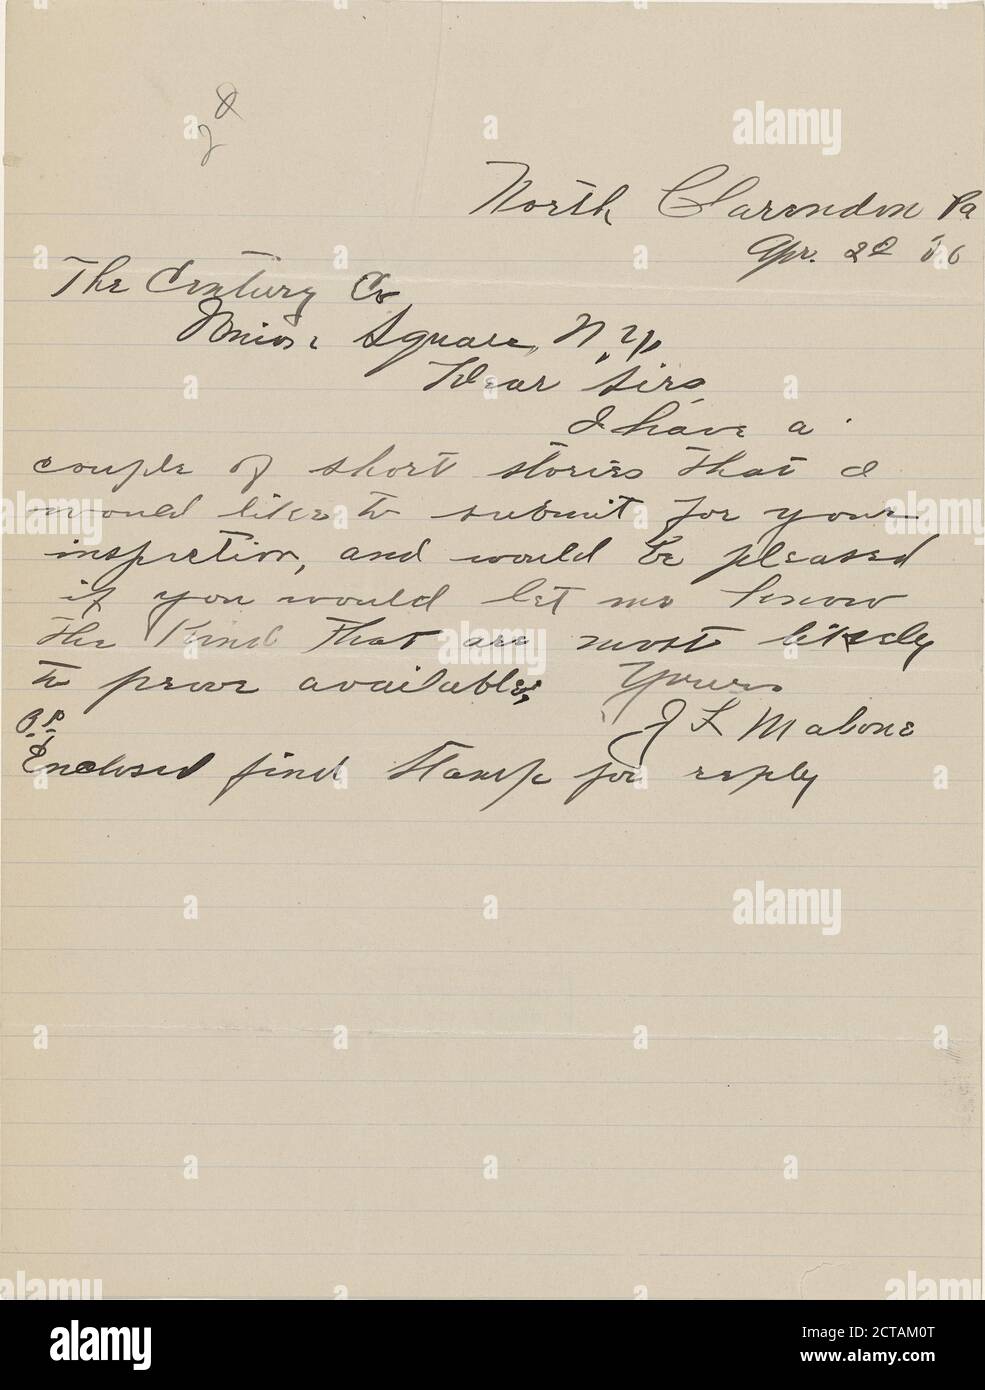 North Clarendon Pa
Apr. 22 '06
The Century Co
Union Square, N.Y.
Dear Sirs,
I have a
couple of short stories that I
would like to submit for your
inspection, and would be pleased
if you would let me know
the kind that are most likely
to prove available, Yours
J L Malone
P.S.
Enclosed find stamp for reply
alamy
Image ID: 2CTAM0T
www.alamy.com